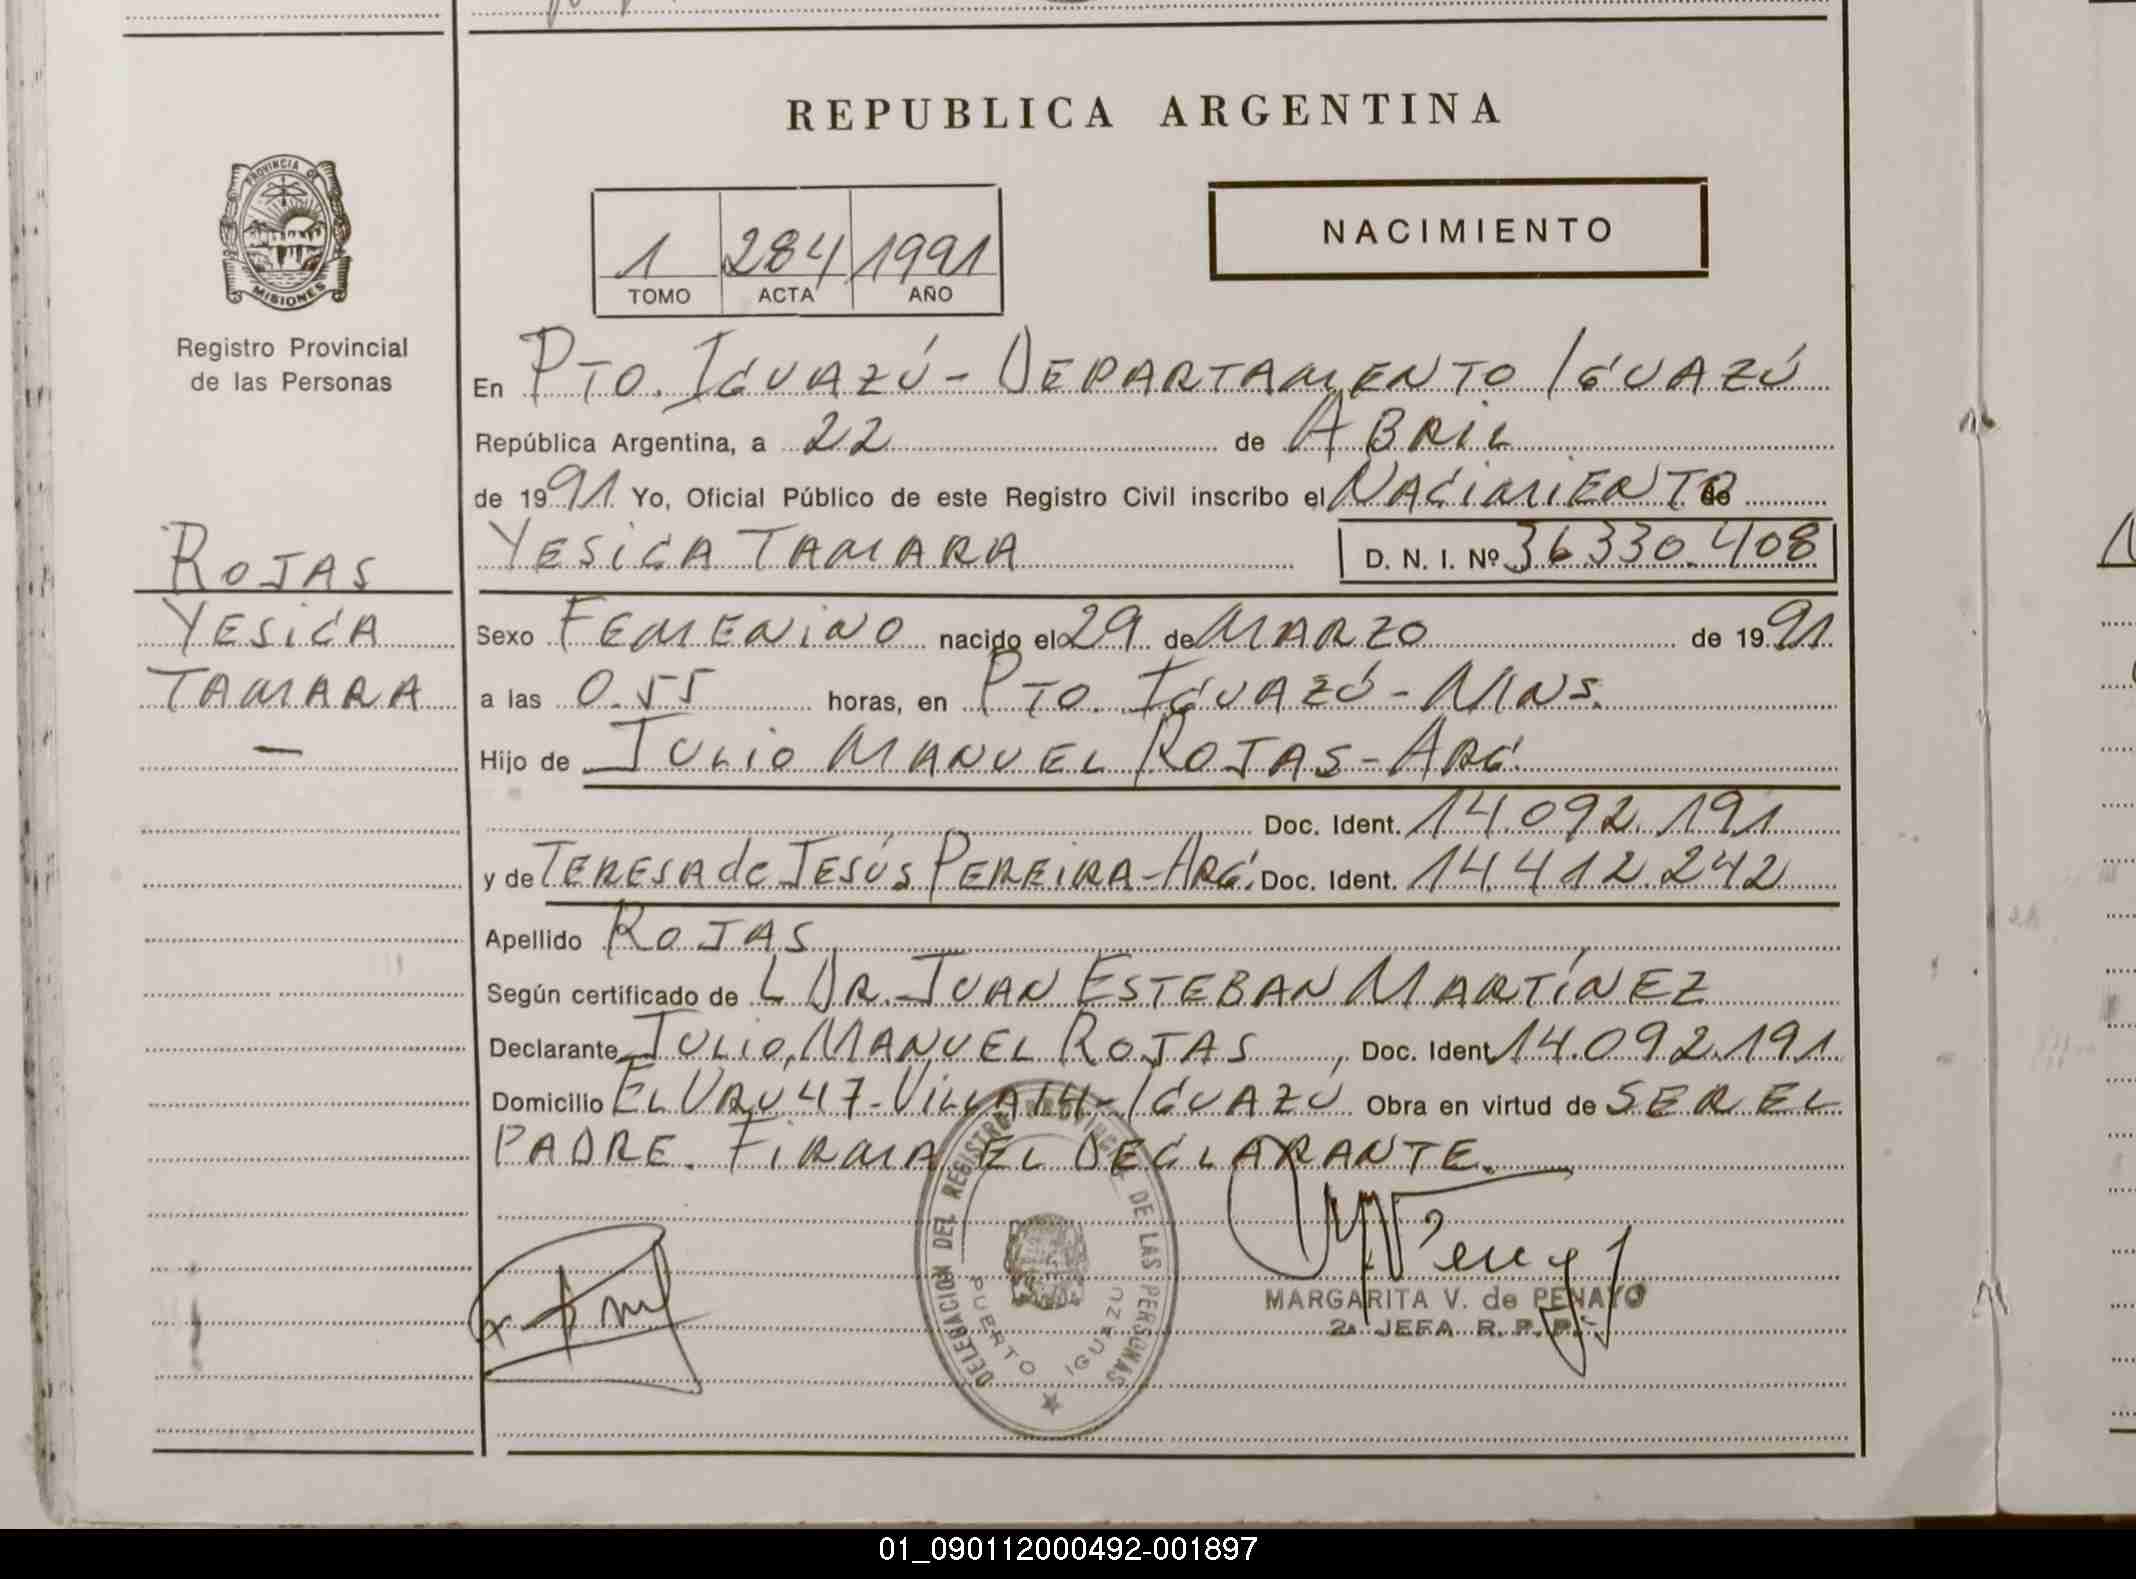 REPUBLICA ARGENTINA
PROVINCIA DE
MISIONES
Registro Provincial
de las Personas
NACIMIENTO
1 284 1991
TOMO ACTA AÑO
En PTO. IGUAZÚ - DEPARTAMENTO IGUAZÚ
República Argentina, a 22 de ABRIL
de 1991 Yo, Oficial Público de este Registro Civil inscribo el NACIMIENTO de
YESICA TAMARA D. N. I. Nº 36.330.408
ROJAS
YESICA
TAMARA
—
Sexo FEMENINO nacido el 29 de MARZO de 1991
a las 0.55 horas, en PTO. IGUAZÚ - MNS.
Hijo de JULIO MANUEL ROJAS - ARG.
Doc. Ident. 14.092.191
y de TERESA de JESÚS PEREIRA - ARG. Doc. Ident. 14.412.242
Apellido ROJAS
Según certificado de L DR. JUAN ESTEBAN MARTÍNEZ
Declarante JULIO MANUEL ROJAS, Doc. Ident 14.092.191
Domicilio EL URU 47 - VILLA 14 - IGUAZU Obra en virtud de SER EL
PADRE. FIRMA EL DECLARANTE.
DELEGACION DEL REGISTRO PROVINCIAL DE LAS PERSONAS
PUERTO IGUAZU
MARGARITA V. de PENAYO
2a JEFA R. P. P.
01_090112000492-001897